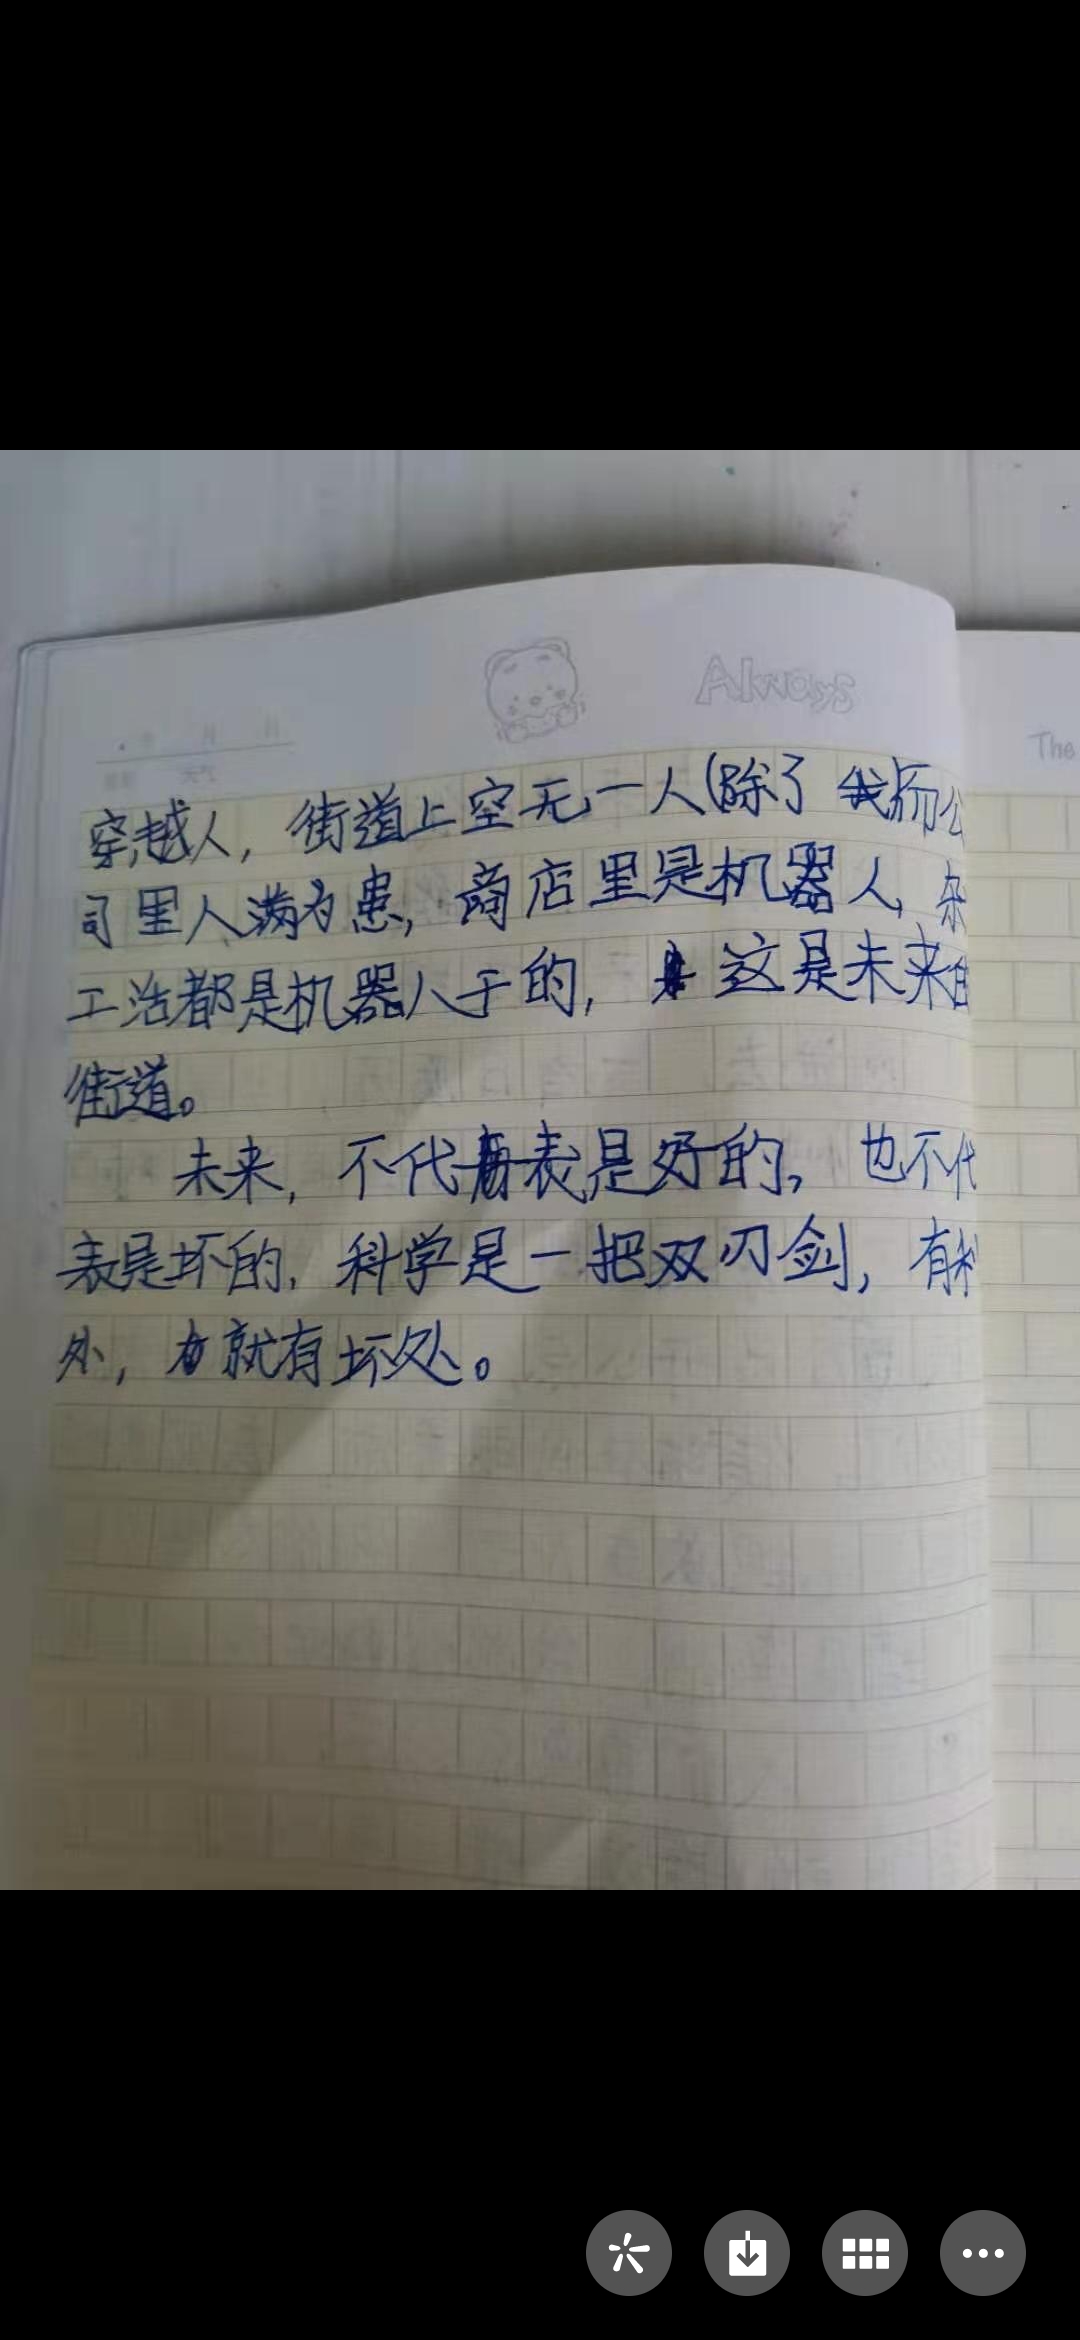 Always
The
穿越人，街道上空无一人(除了我)而公
司里人满为患，商店里是机器人，杂
工活都是机器人干的，这是未来的
街道。
未来，不代表是好的，也不代
表是坏的，科学是一把双刃剑，有利
处，就有坏处。